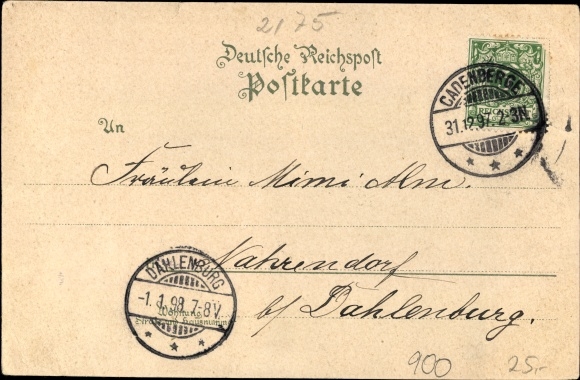 2175
Deutsche Reichspost
Postkarte
An
CADENBERGE
31.12.97. 2-3N.
REICHSPOST
Fräulein Mimi Alm.
Nahrendorf
b/ Dahlenburg.
DAHLENBURG
-1. 1. 98. 7-8V.
Wohnung
Straße und Hausnummer
900
25,-